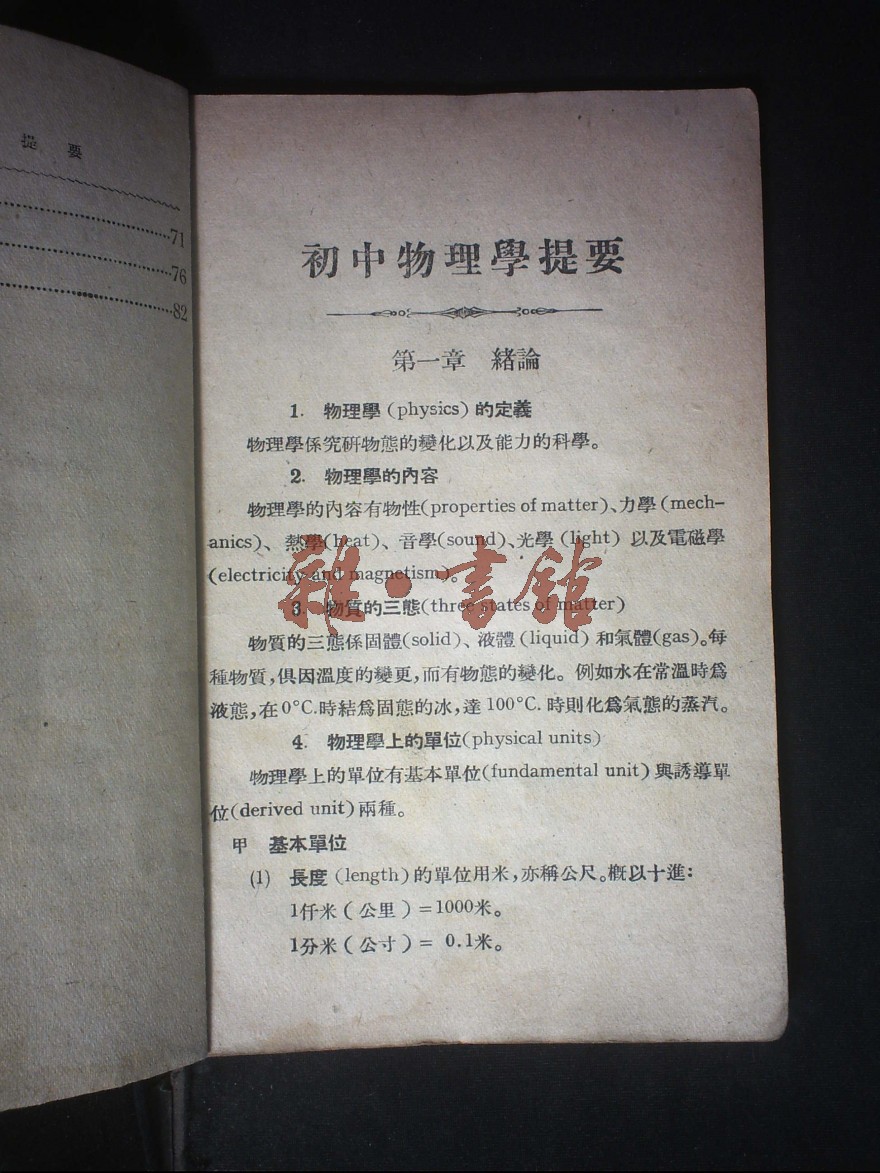 提 要
71
76
82
初中物理學提要
第一章 緒論
1. 物理學(physics)的定義
物理學係究硏物態的變化以及能力的科學。
2. 物理學的內容
物理學的內容有物性(properties of matter)、力學(mech-
anics)、熱學(heat)、音學(sound)、光學(light) 以及電磁學
(electricity and magnetism)。
3. 物質的三態(three states of matter)
物質的三態係固體(solid)、液體(liquid)和氣體(gas)。每
種物質,俱因溫度的變更,而有物態的變化。例如水在常溫時爲
液態,在0°C.時結爲固態的冰,達100°C.時則化爲氣態的蒸汽。
4. 物理學上的單位(physical units)
物理學上的單位有基本單位(fundamental unit)與誘導單
位(derived unit)兩種。
甲 基本單位
(1) 長度(length)的單位用米,亦稱公尺。概以十進:
1仟米(公里)=1000米。
1分米(公寸)= 0.1米。
雜·書館